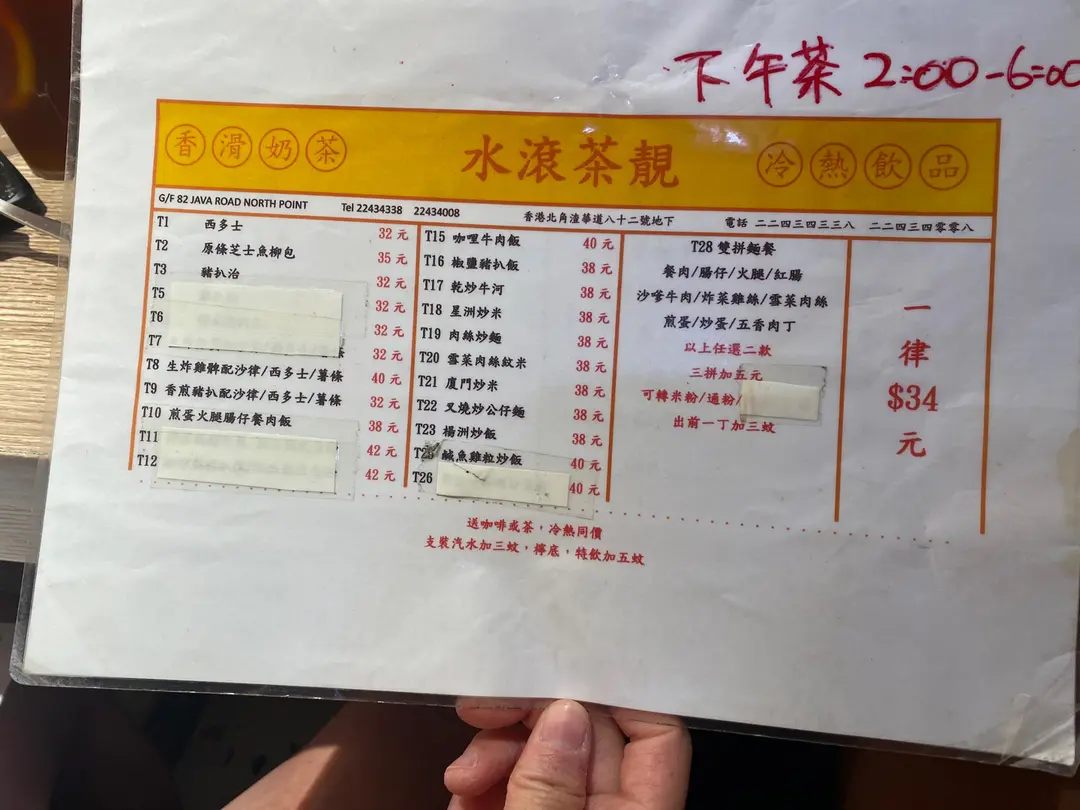 下午茶 2:00-6:00
香滑奶茶
水滾茶靚
冷熱飲品
G/F 82 JAVA ROAD NORTH POINT Tel 22434338 22434008 香港北角渣華道八十二號地下 電話 二二四三四三三八 二二四三四零零八
T1 西多士 32 元
T2 原條芝士魚柳包 35 元
T3 豬扒治 32 元
T5 32 元
T6 32 元
T7 32 元
T8 生炸雞髀配沙律/西多士/薯條 40 元
T9 香煎豬扒配沙律/西多士/薯條 32 元
T10 煎蛋火腿腸仔餐肉飯 38 元
T11 42 元
T12 42 元
T15 咖喱牛肉飯 40 元
T16 椒鹽豬扒飯 38 元
T17 乾炒牛河 38 元
T18 星洲炒米 38 元
T19 肉絲炒麵 38 元
T20 雪菜肉絲紋米 38 元
T21 廈門炒米 38 元
T22 叉燒炒公仔麵 38 元
T23 揚洲炒飯 38 元
鹹魚雞粒炒飯 40 元
T26 40 元
T28 雙拼麵餐
餐肉/腸仔/火腿/紅腸
沙嗲牛肉/炸菜雞絲/雪菜肉絲
煎蛋/炒蛋/五香肉丁
以上任選二款
三拼加五元
可轉米粉/通粉/
出前一丁加三蚊
一
律
$34
元
送咖啡或茶，冷熱同價
支裝汽水加三蚊，檸底，特飲加五蚊